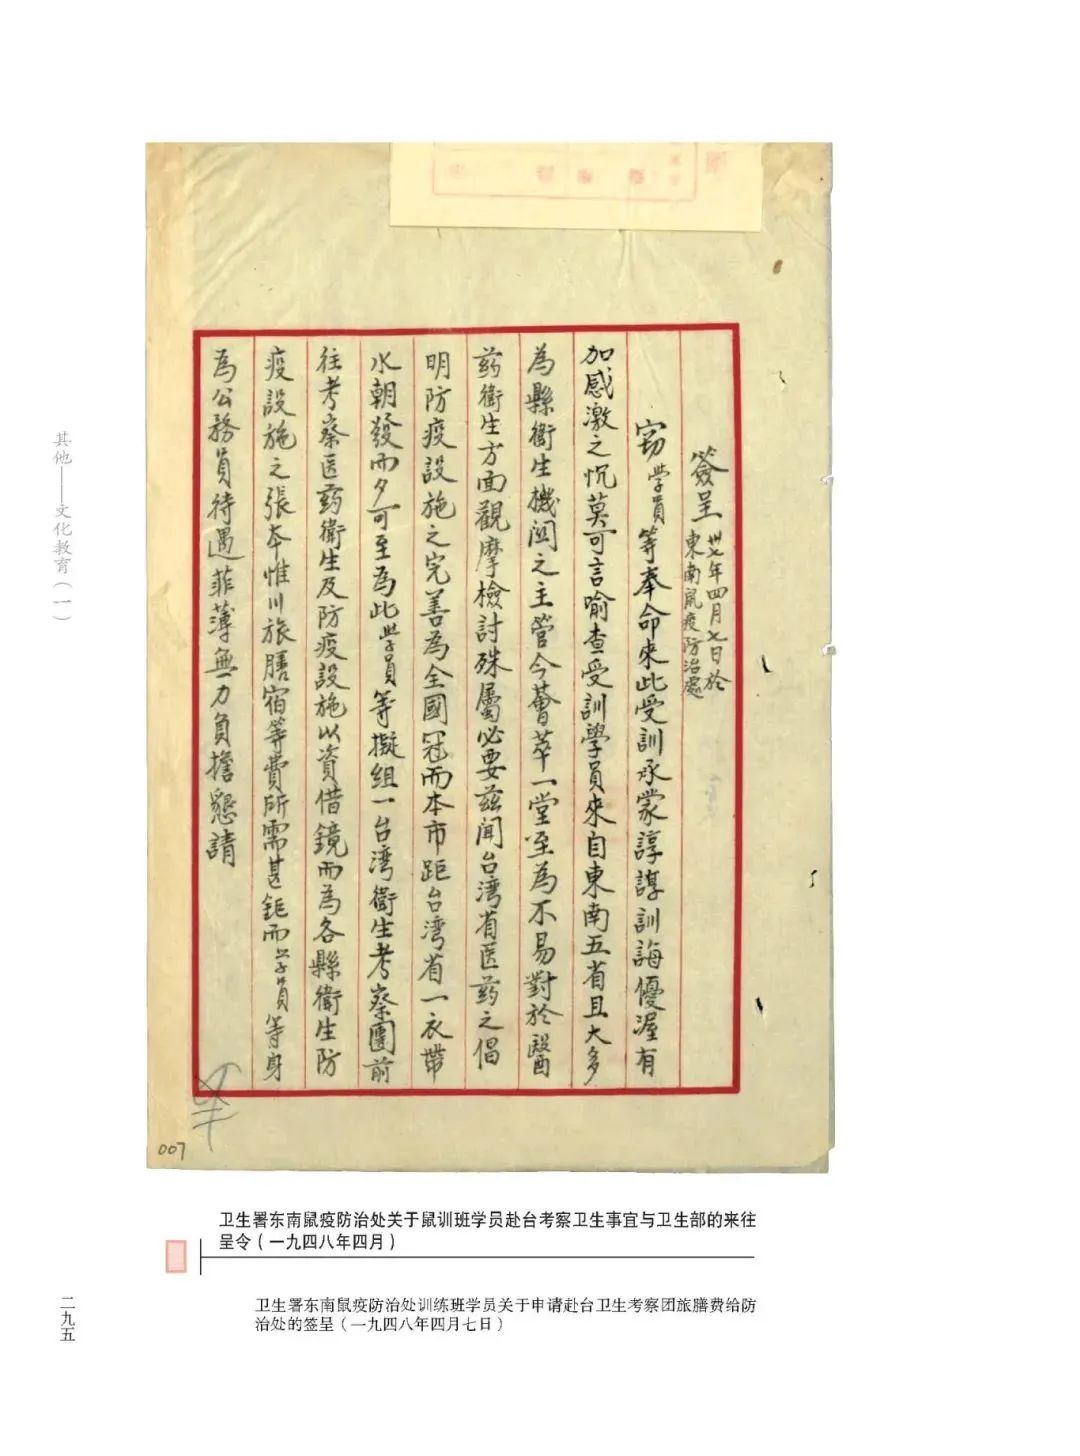 簽呈 卅七年四月七日於
東南鼠疫防治處
竊學員等奉命來此受訓承蒙諄諄訓誨優渥有
加感激之忱莫可言喻查受訓學員來自東南五省且大多
為縣衛生機関之主管今薈萃一堂至為不易對於醫
药衛生方面觀摩檢討殊屬必要兹闻台湾省医药之倡
明防疫設施之完善為全國冠而本市距台湾省一衣帶
水朝發而夕可至為此學員等擬組一台湾衛生考察團前
往考察医药衛生及防疫設施以資借鏡而為各縣衛生防
疫設施之張本惟川旅膳宿等費所需甚鉅而学員等身
為公務員待遇菲薄無力負擔懇請
007
其他——文化教育(一)
卫生署东南鼠疫防治处关于鼠训班学员赴台考察卫生事宜与卫生部的来往
呈令(一九四八年四月)
卫生署东南鼠疫防治处训练班学员关于申请赴台卫生考察团旅膳费给防
治处的签呈(一九四八年四月七日)
二九五